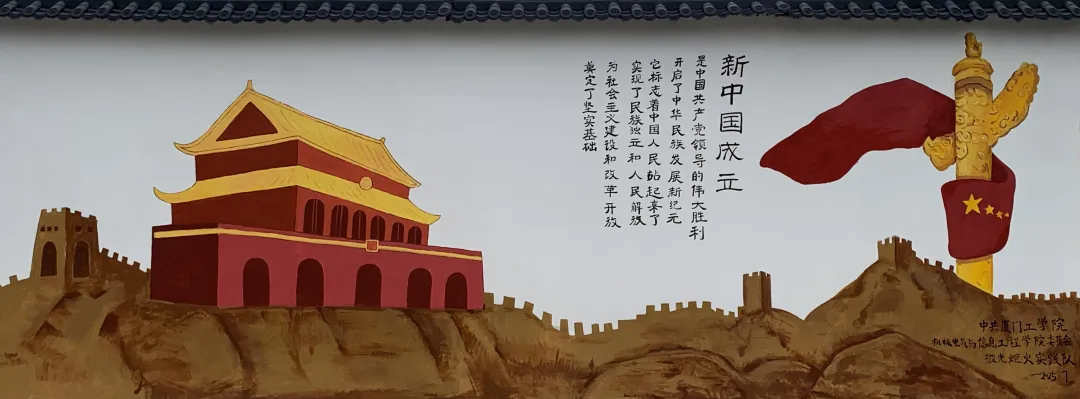 新中国成立
是中国共产党领导的伟大胜利
开启了中华民族发展新纪元
它标志着中国人民站起来了
实现了民族独立和人民解放
为社会主义建设和改革开放
奠定了坚实基础
中共厦门工学院
机械电气与信息工程学院委员会
微光炬火实践队